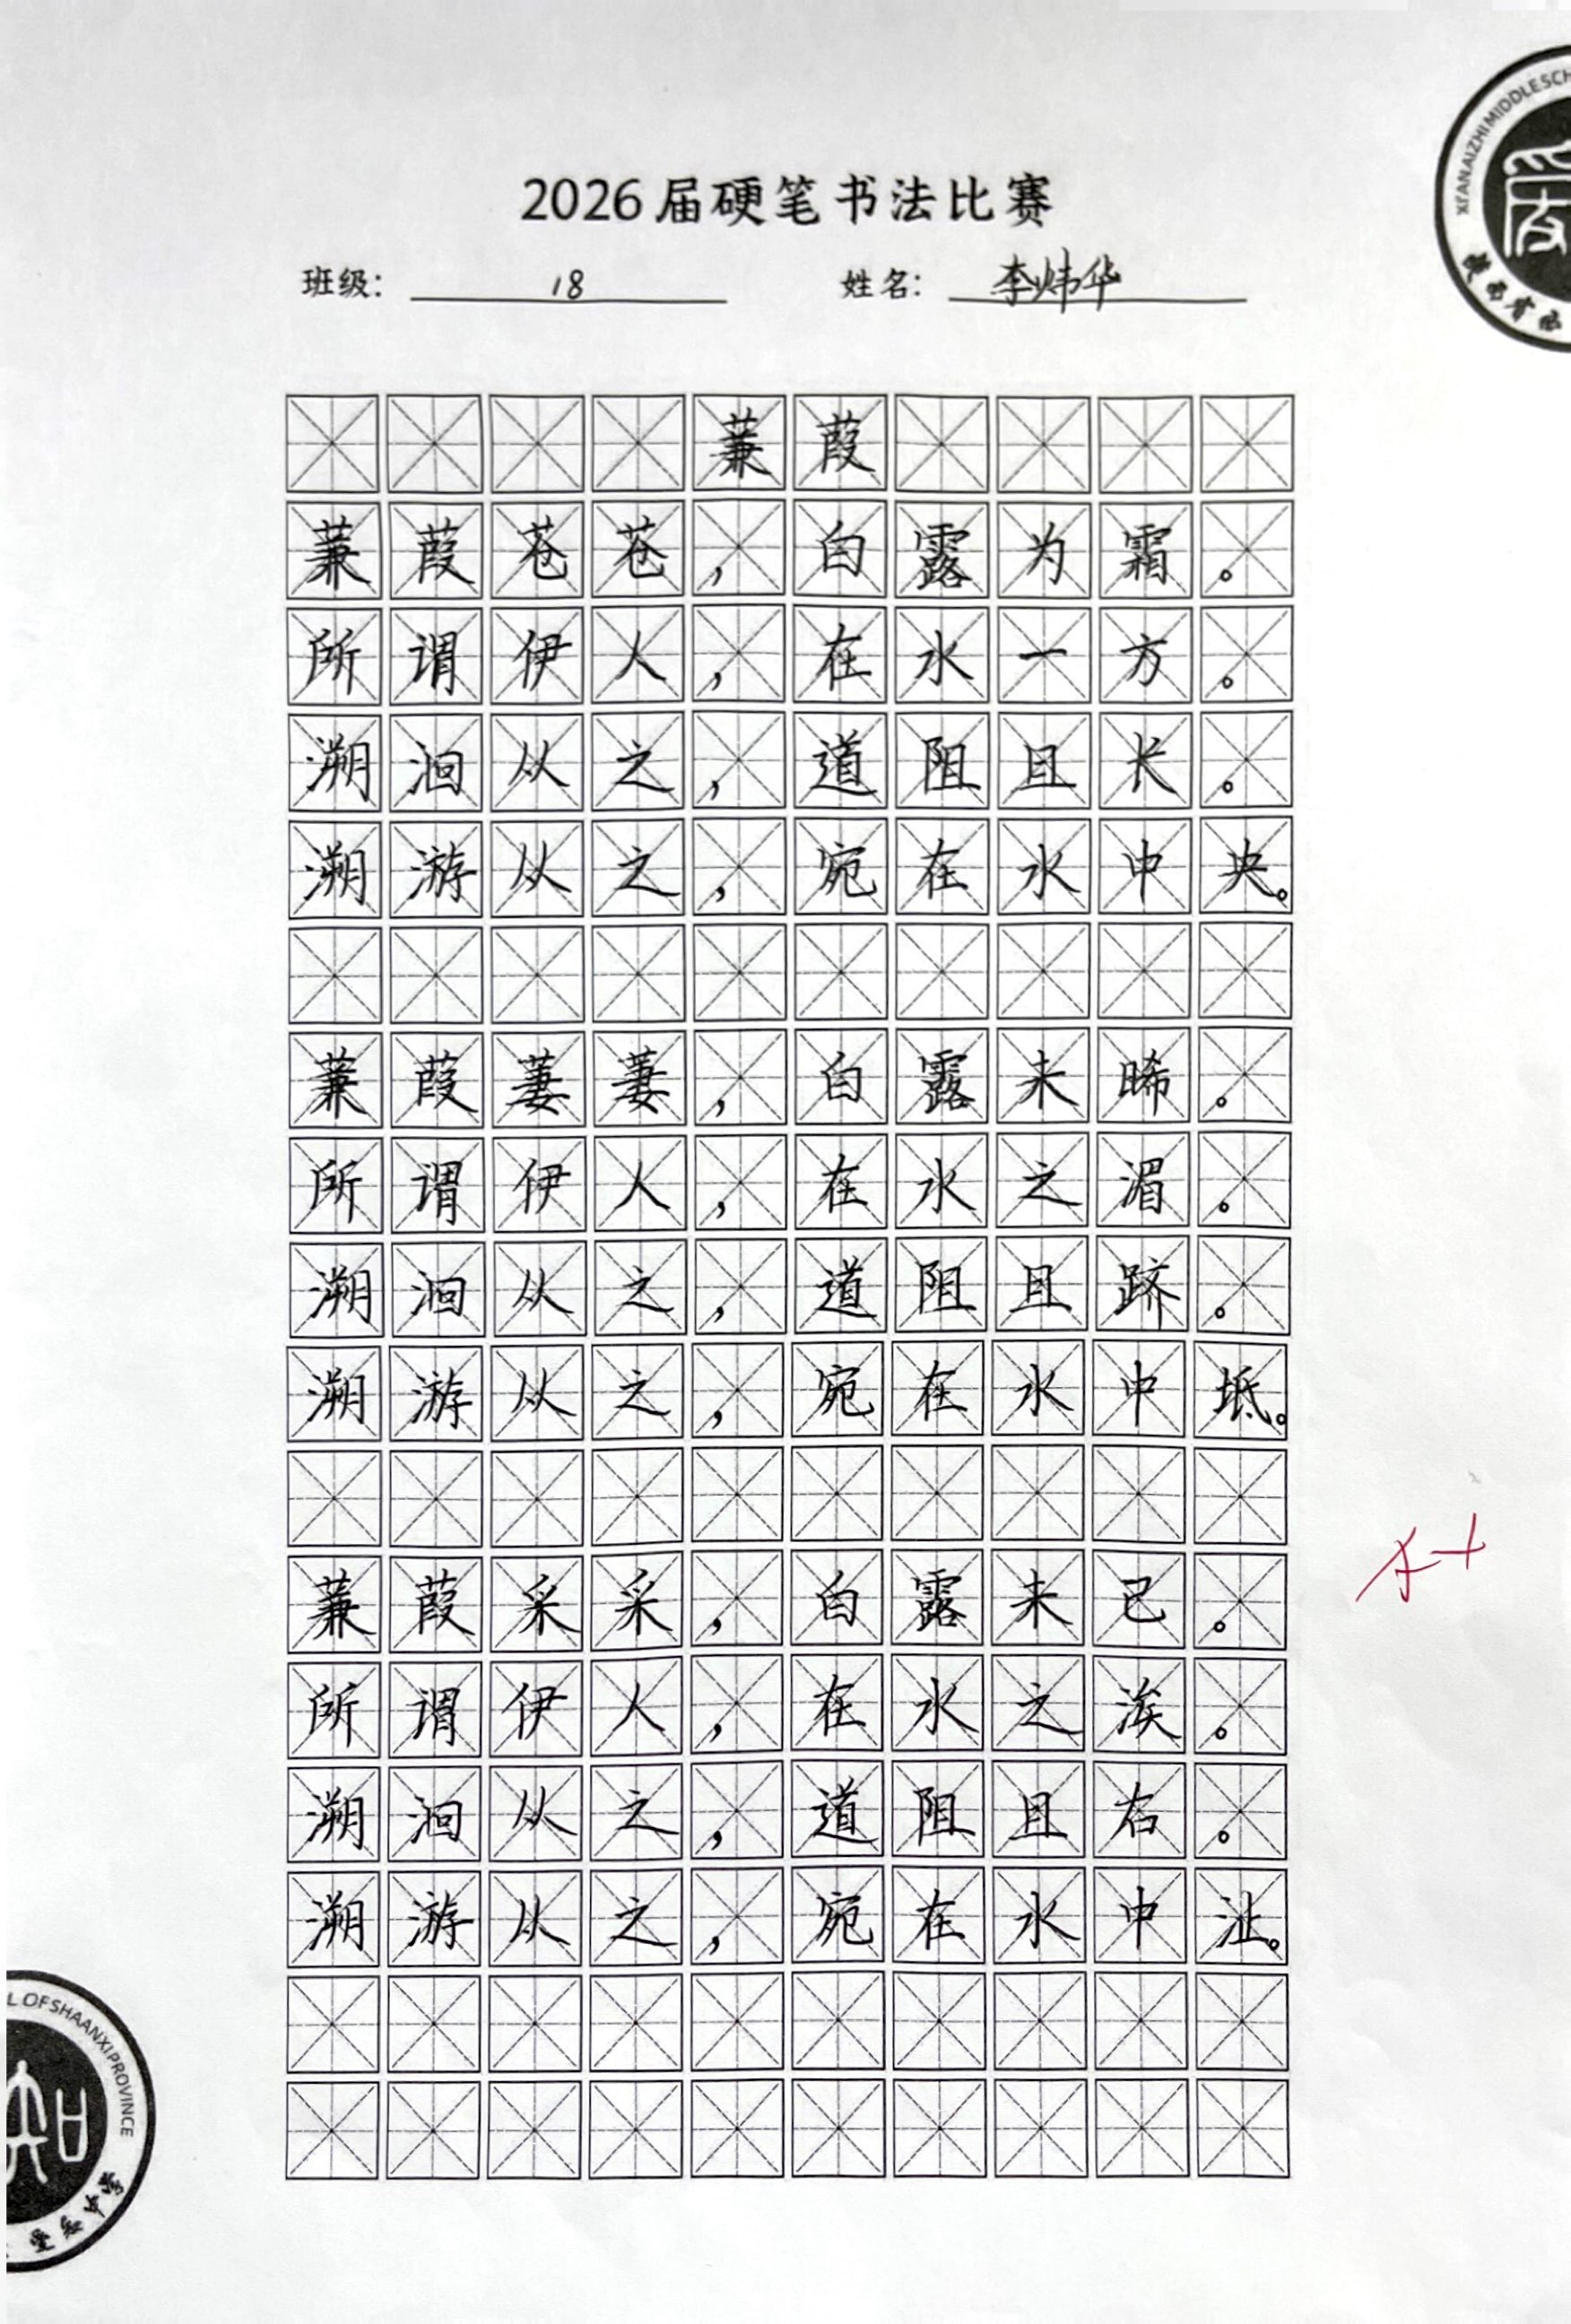 2026届硬笔书法比赛
班级： 18 姓名： 李炜华
蒹葭
蒹葭苍苍，白露为霜。
所谓伊人，在水一方。
溯洄从之，道阻且长。
溯游从之，宛在水中央。
蒹葭萋萋，白露未晞。
所谓伊人，在水之湄。
溯洄从之，道阻且跻。
溯游从之，宛在水中坻。
蒹葭采采，白露未已。
所谓伊人，在水之涘。
溯洄从之，道阻且右。
溯游从之，宛在水中沚。
A+
XI'AN AIZHI MIDDLE SCH
陕西省西
L OF SHAANXI PROVINCE
爱知中学